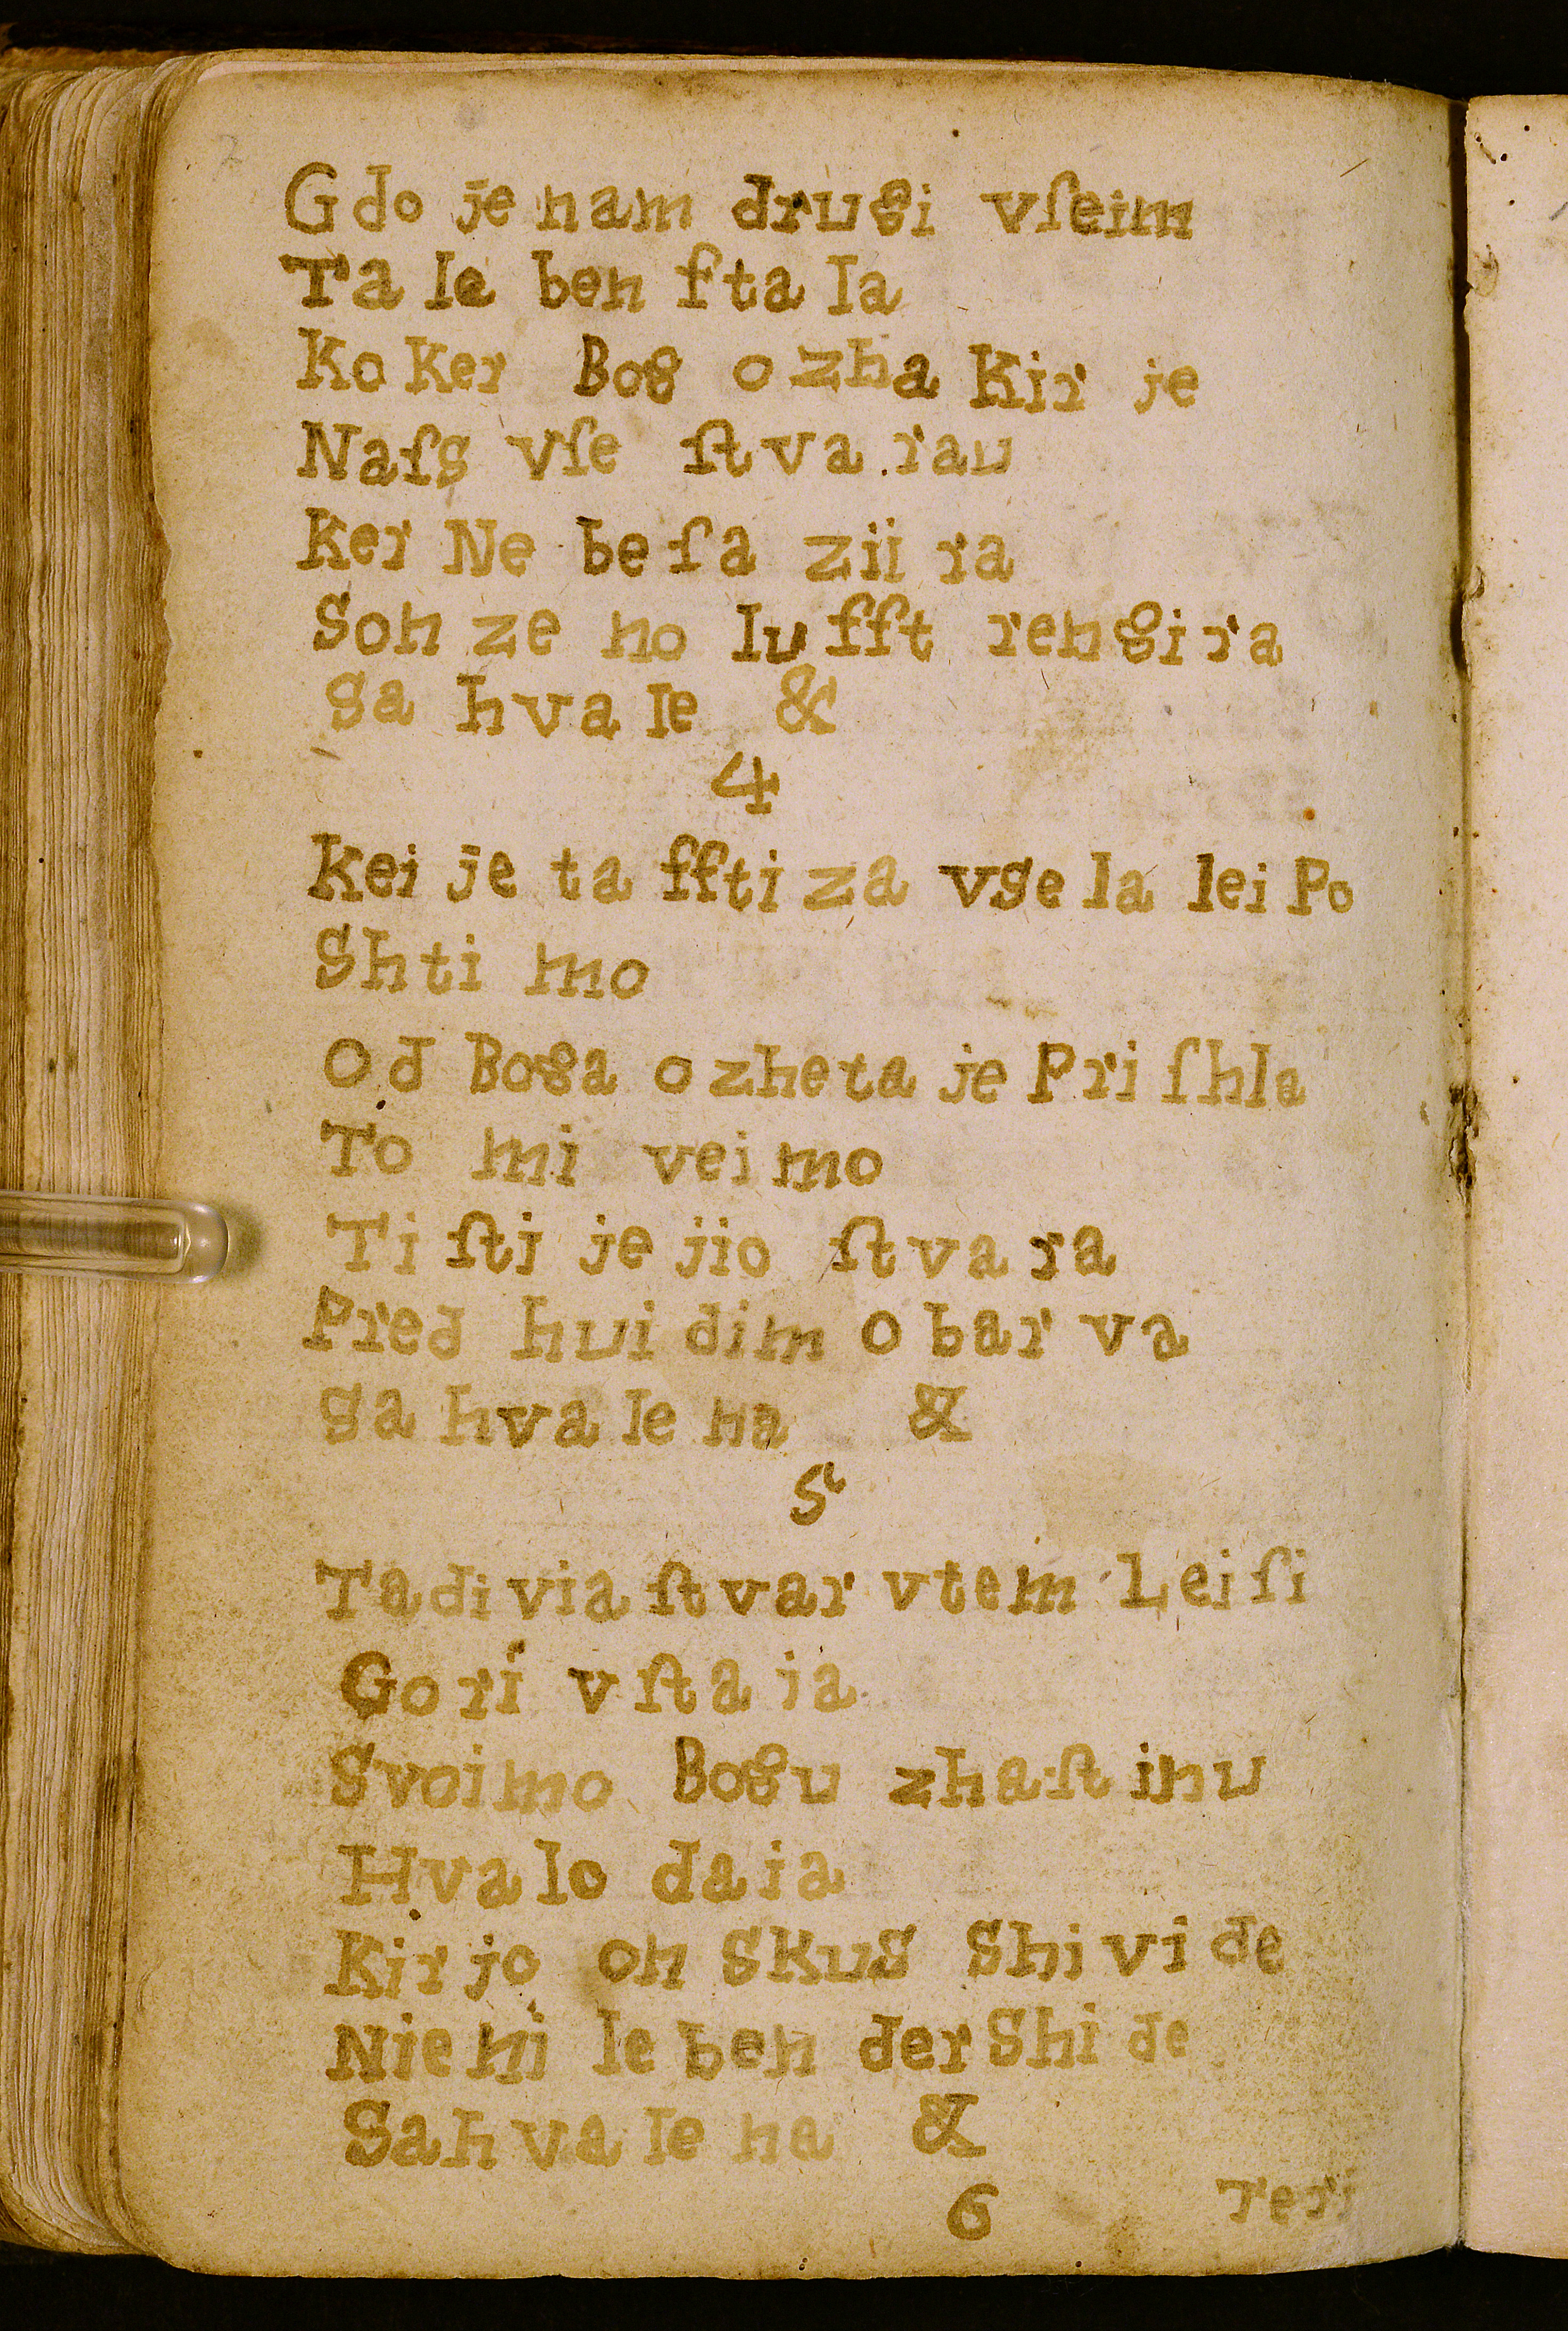 Gdo je nam drugi vſeim
Ta le ben ſta la
Ko Ker Bog o zha Kir je
Naſs vſe ſt va rau
Ker Ne be ſa zii ra
Son ze no lu ſſt ren gi ra
ga hva le &
4
Kei je ta ſſti za vse la lei Po
Shti mo
Od Boga o zhe ta je Pri ſhla
To mi vei mo
Ti ſti je jio ſt va ra
Pred hui dim o bar va
ga hva le na &
5
Ta di via ſt var v tem Lei ſi
Gori v ſta ja
Svoimo Bogu zha ſt inu
Hva lo da ia
Kir jo on skus Shi vi de
Nie ni le ben der Shi de
Sah va le na &
6
Teri